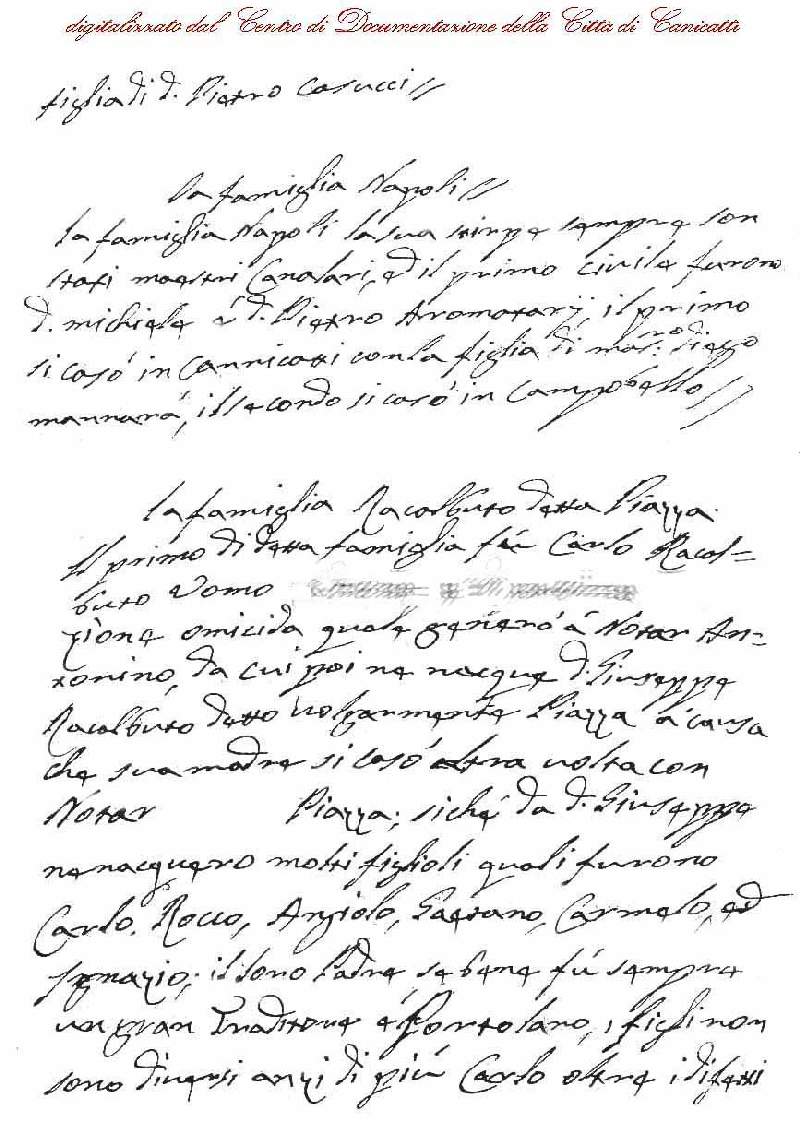 digitalizzato dal Centro di Documentazione della Città di Canicattì
figlia di d. Pietro Casucci//
La famiglia Napoli//
La famiglia Napoli la sua stirpe sempre son
stati maestri Canalari, ed il primo civile furono
d. michele é d. Pietro Aromatarÿ, il primo
si casó in Cannicatti con la figlia di mas:ro diego
mannará, il secondo si casó in Campobello//
La famiglia Racalbuto detta Piazza
Il primo di detta famiglia fú Carlo Racal=
buto Uomo
zione omicida quale generó á Notar An=
tonino, da cui poi ne nacque d. Giuseppe
Racalbuto detto volgarmente Piazza á causa
che sua madre si casó altra volta con
Notar Piazza; siché da d. Giuseppe
ne nacquero molti figlioli quali furono
Carlo, Rocco, Angiolo, Gaetano, Carmelo, ed
Ignazio; il loro Padre se bene fú sempre
un gran Traditore é, i figli non
sono diversi anzi di piú Carlo oltre i difetti